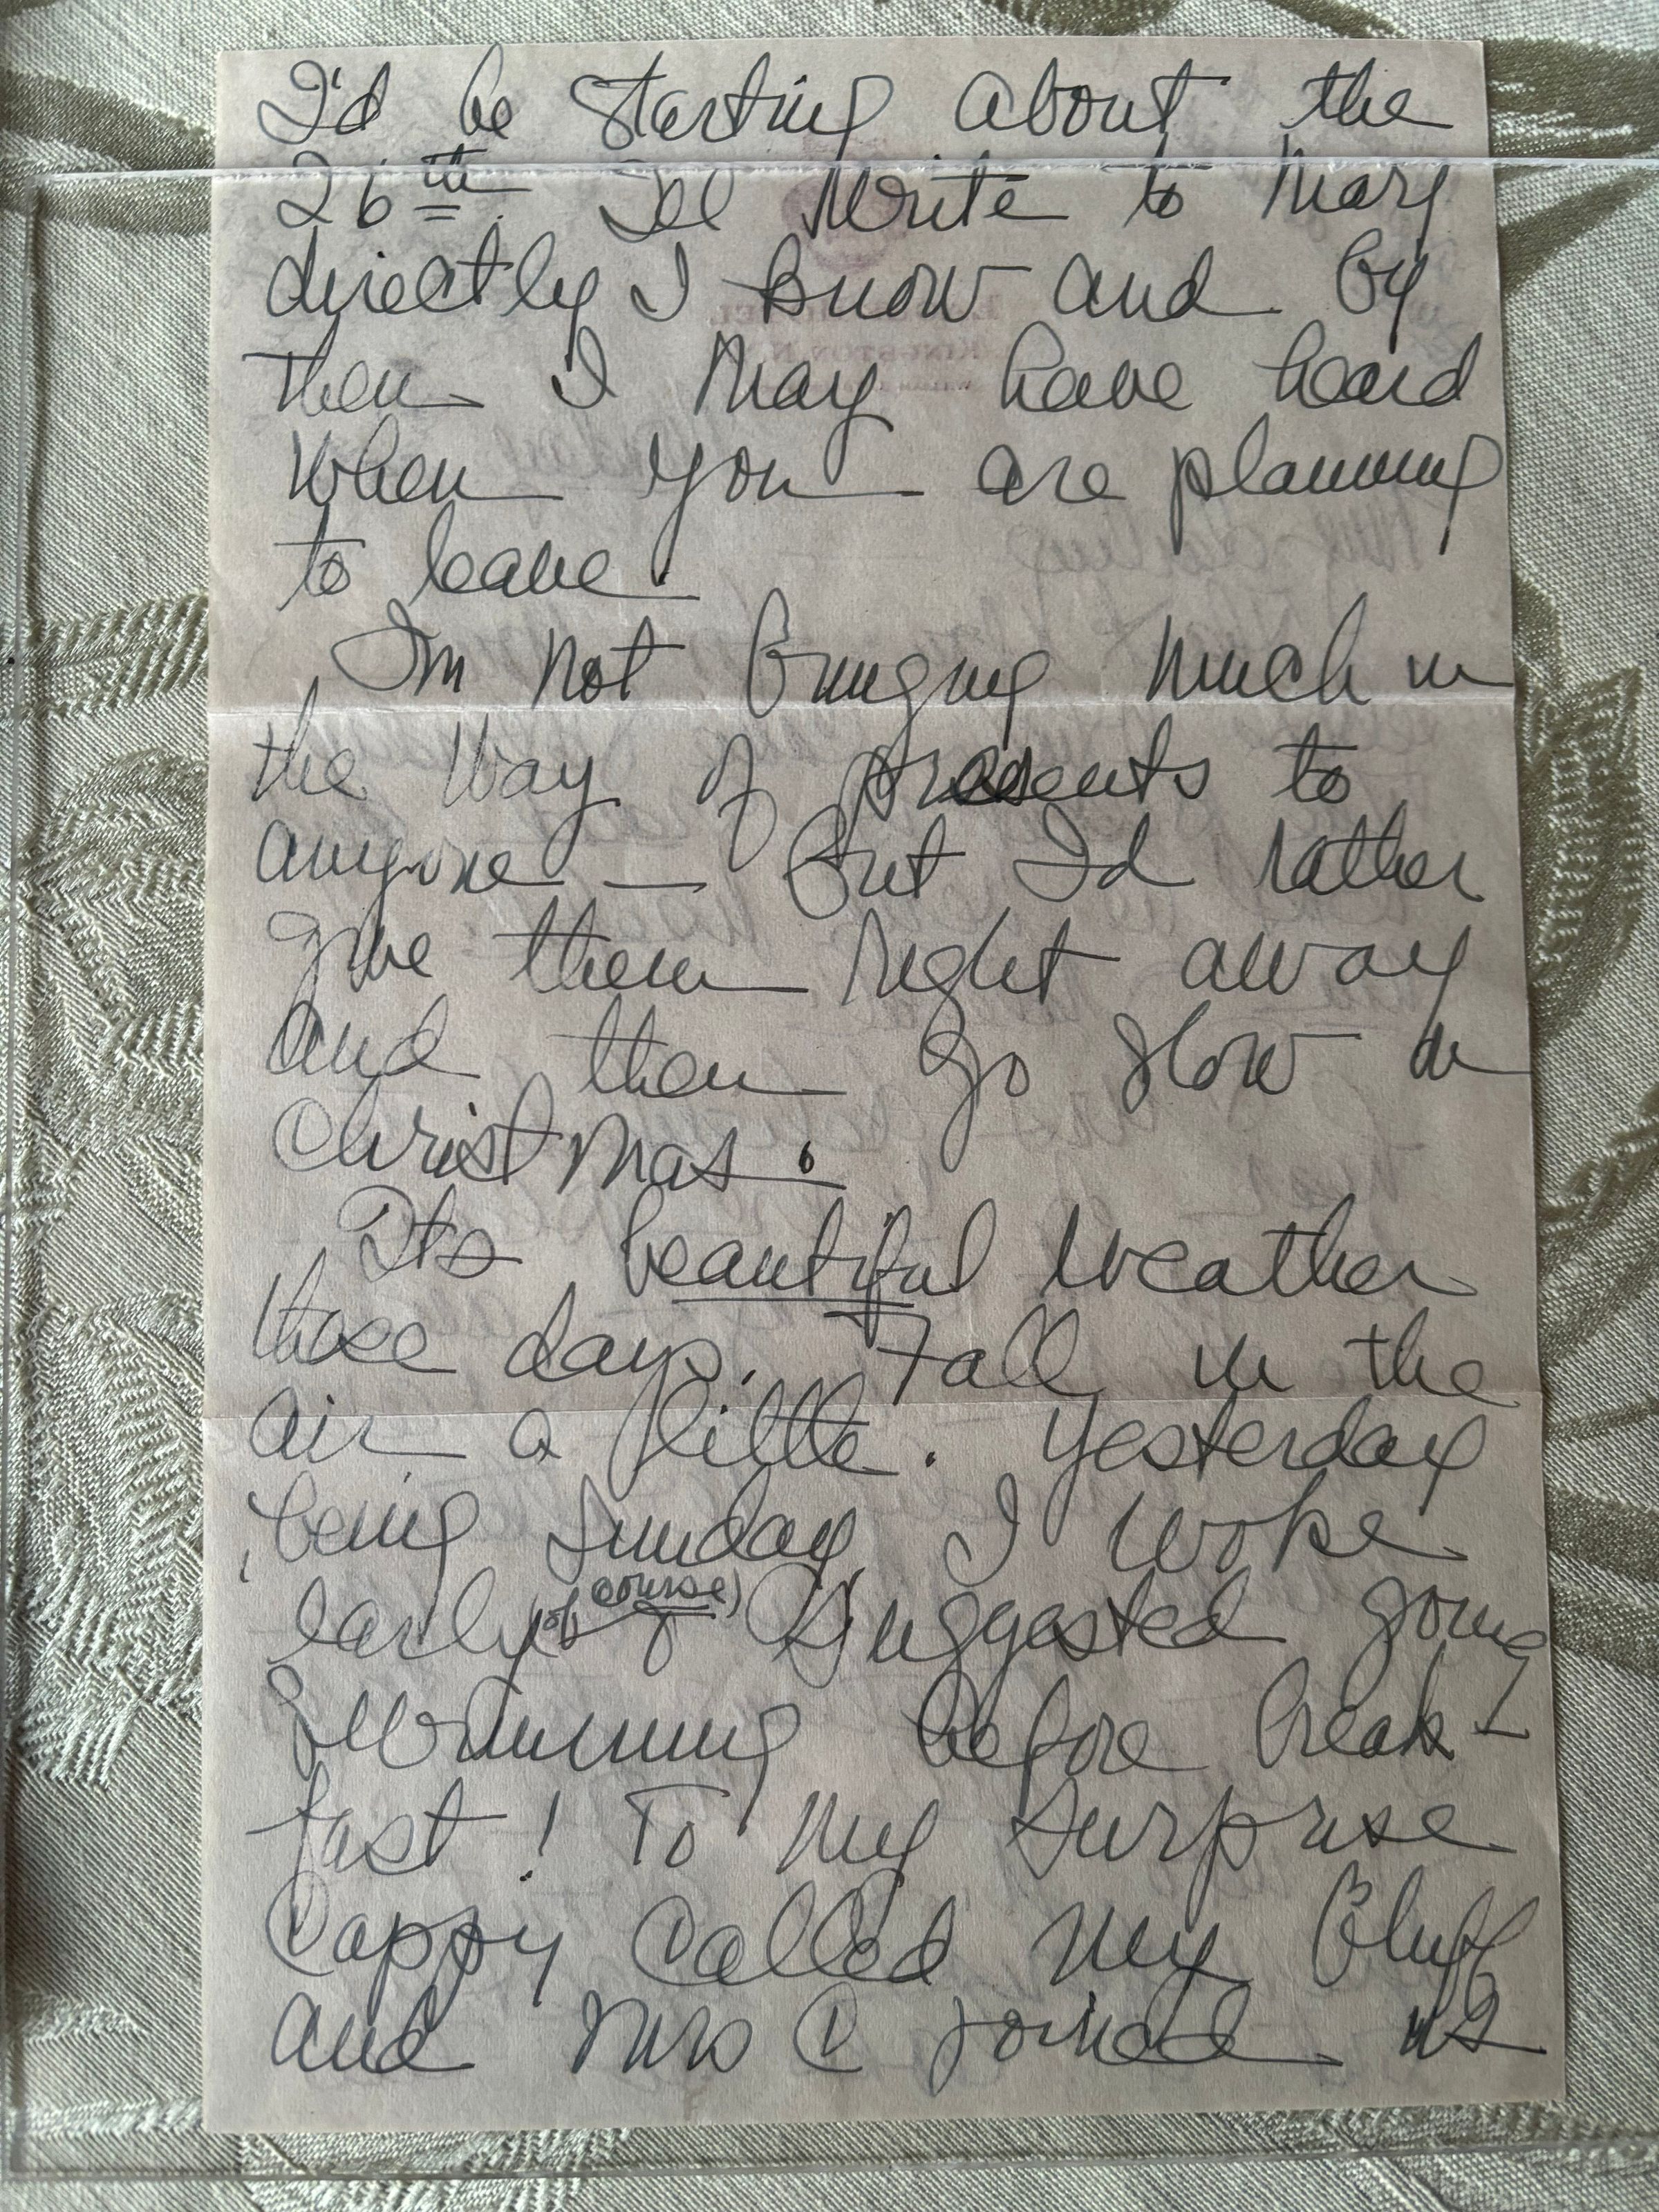 I'd be starting about the
26th. I'll write to Mary
directly I know and by
then I may have heard
when you are planning
to leave.
I'm not bringing much in
the way of presents to
anyone — But I'd rather
give them right away
and then go slow on
Christmas.
It's beautiful weather
these days. Fall in the
air a little. Yesterday
being Sunday I woke
early (of course) & suggested going
swimming before break-
fast! To my surprise
Cappy called my bluff
and Mrs C joined us